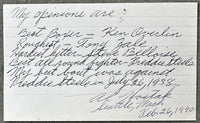 My opinions are:
Best Boxer – Ken Overlin
Roughest – Tony Zale
Hardest hitter – Steve Belloise
Best all round fighter – Freddie Steele
My best bout was against
Freddie Steele in July 26, 1938
Al Hostak
Seattle, Wash
Feb. 26, 1990